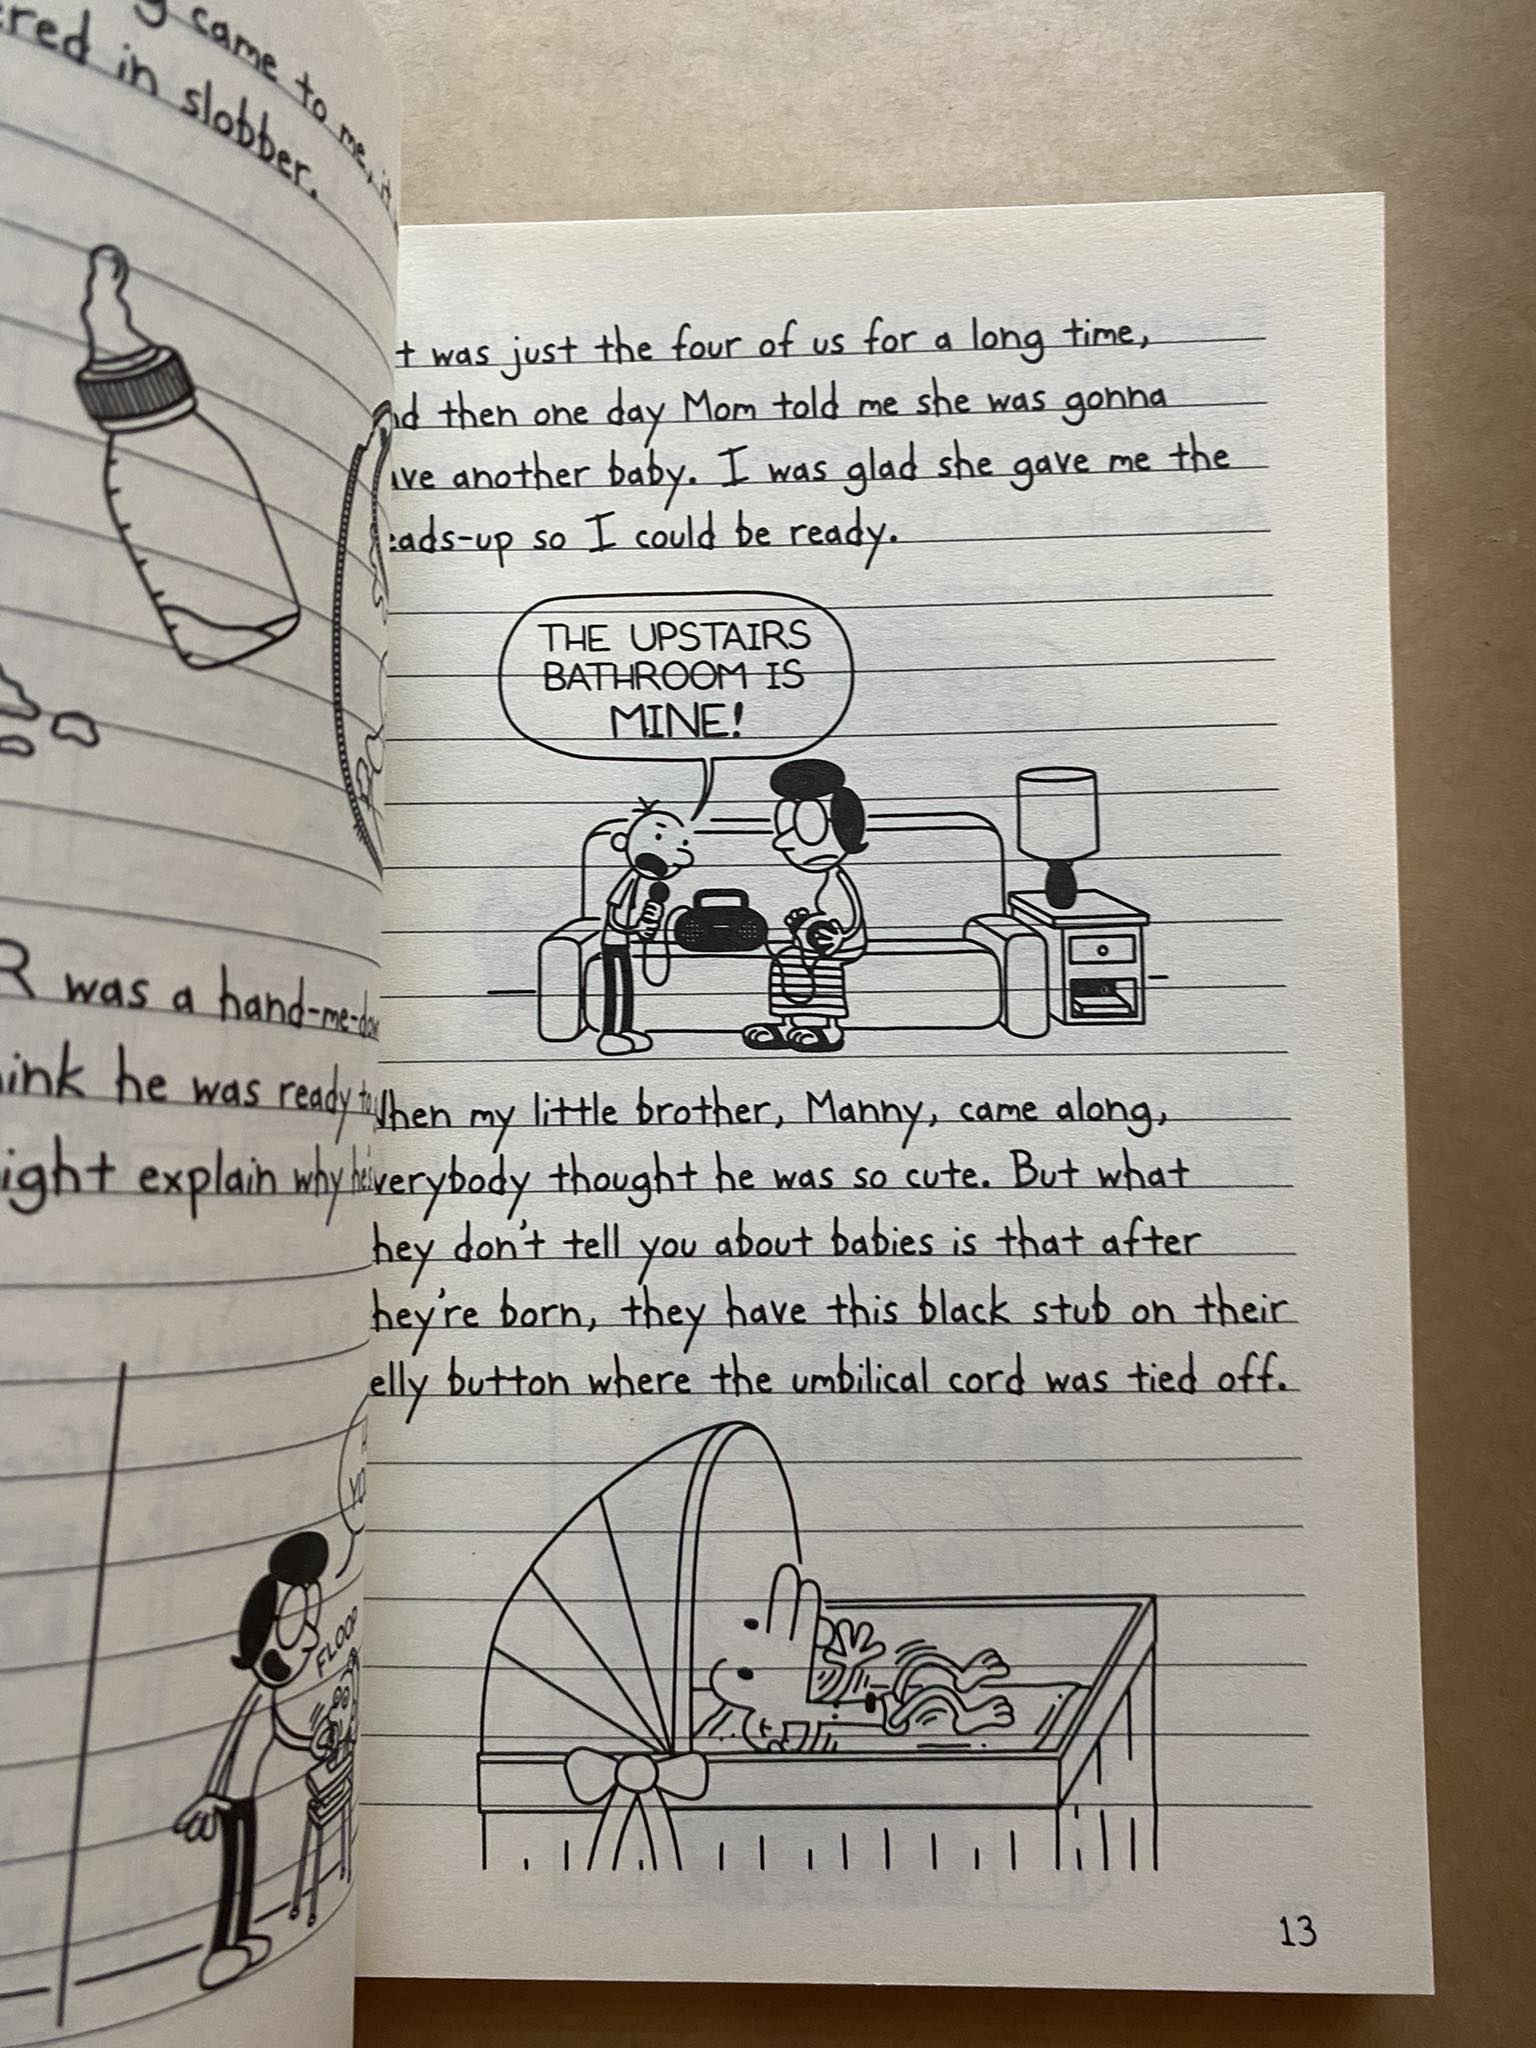 came to me, it
red in slobber.
R was a hand-me-do
ink he was ready to
ight explain why he's
FLOOP
t was just the four of us for a long time,
nd then one day Mom told me she was gonna
ave another baby. I was glad she gave me the
eads-up so I could be ready.
THE UPSTAIRS
BATHROOM IS
MINE!
When my little brother, Manny, came along,
verybody thought he was so cute. But what
hey don't tell you about babies is that after
hey're born, they have this black stub on their
elly button where the umbilical cord was tied off.
13